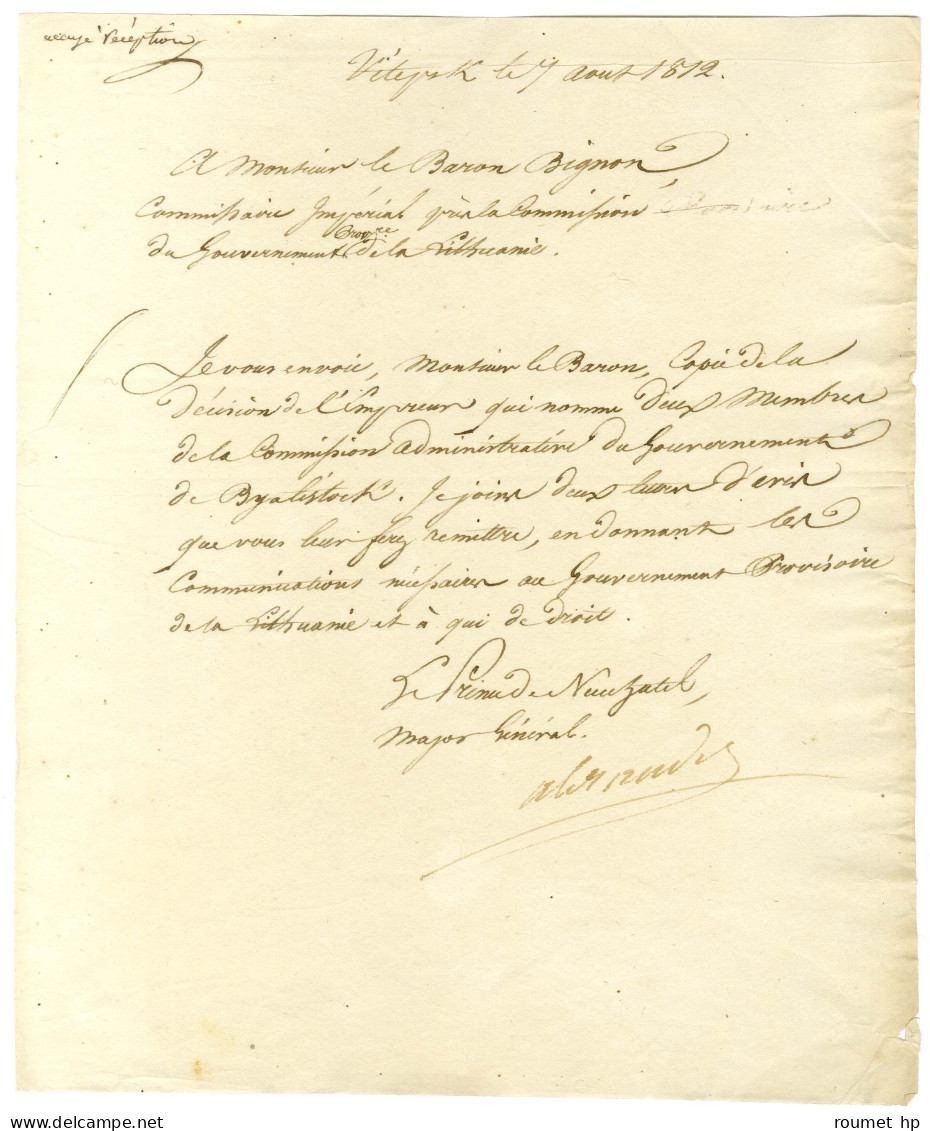 accusé réception
Vitepsk le 7 aout 1812.
A Monsieur le Baron Bignon
Commissaire Impérial près la Commission
Provre.
du Gouvernement de la Lithuanie.
Je vous envoie, Monsieur le Baron, Copie de la
décision de l'Empereur qui nomme deux Membres
de la Commission administrative du Gouvernement
de Byalistock. Je joins deux lettres d'avis
que vous leur ferez remettre, en donnant les
Communications nécessaires au Gouvernement Provisoire
de la Lithuanie et à qui de droit.
Le Prince de Neuchatel,
Major Général.
alexandre
roumet hp
WWW.DELCAMPE.NET